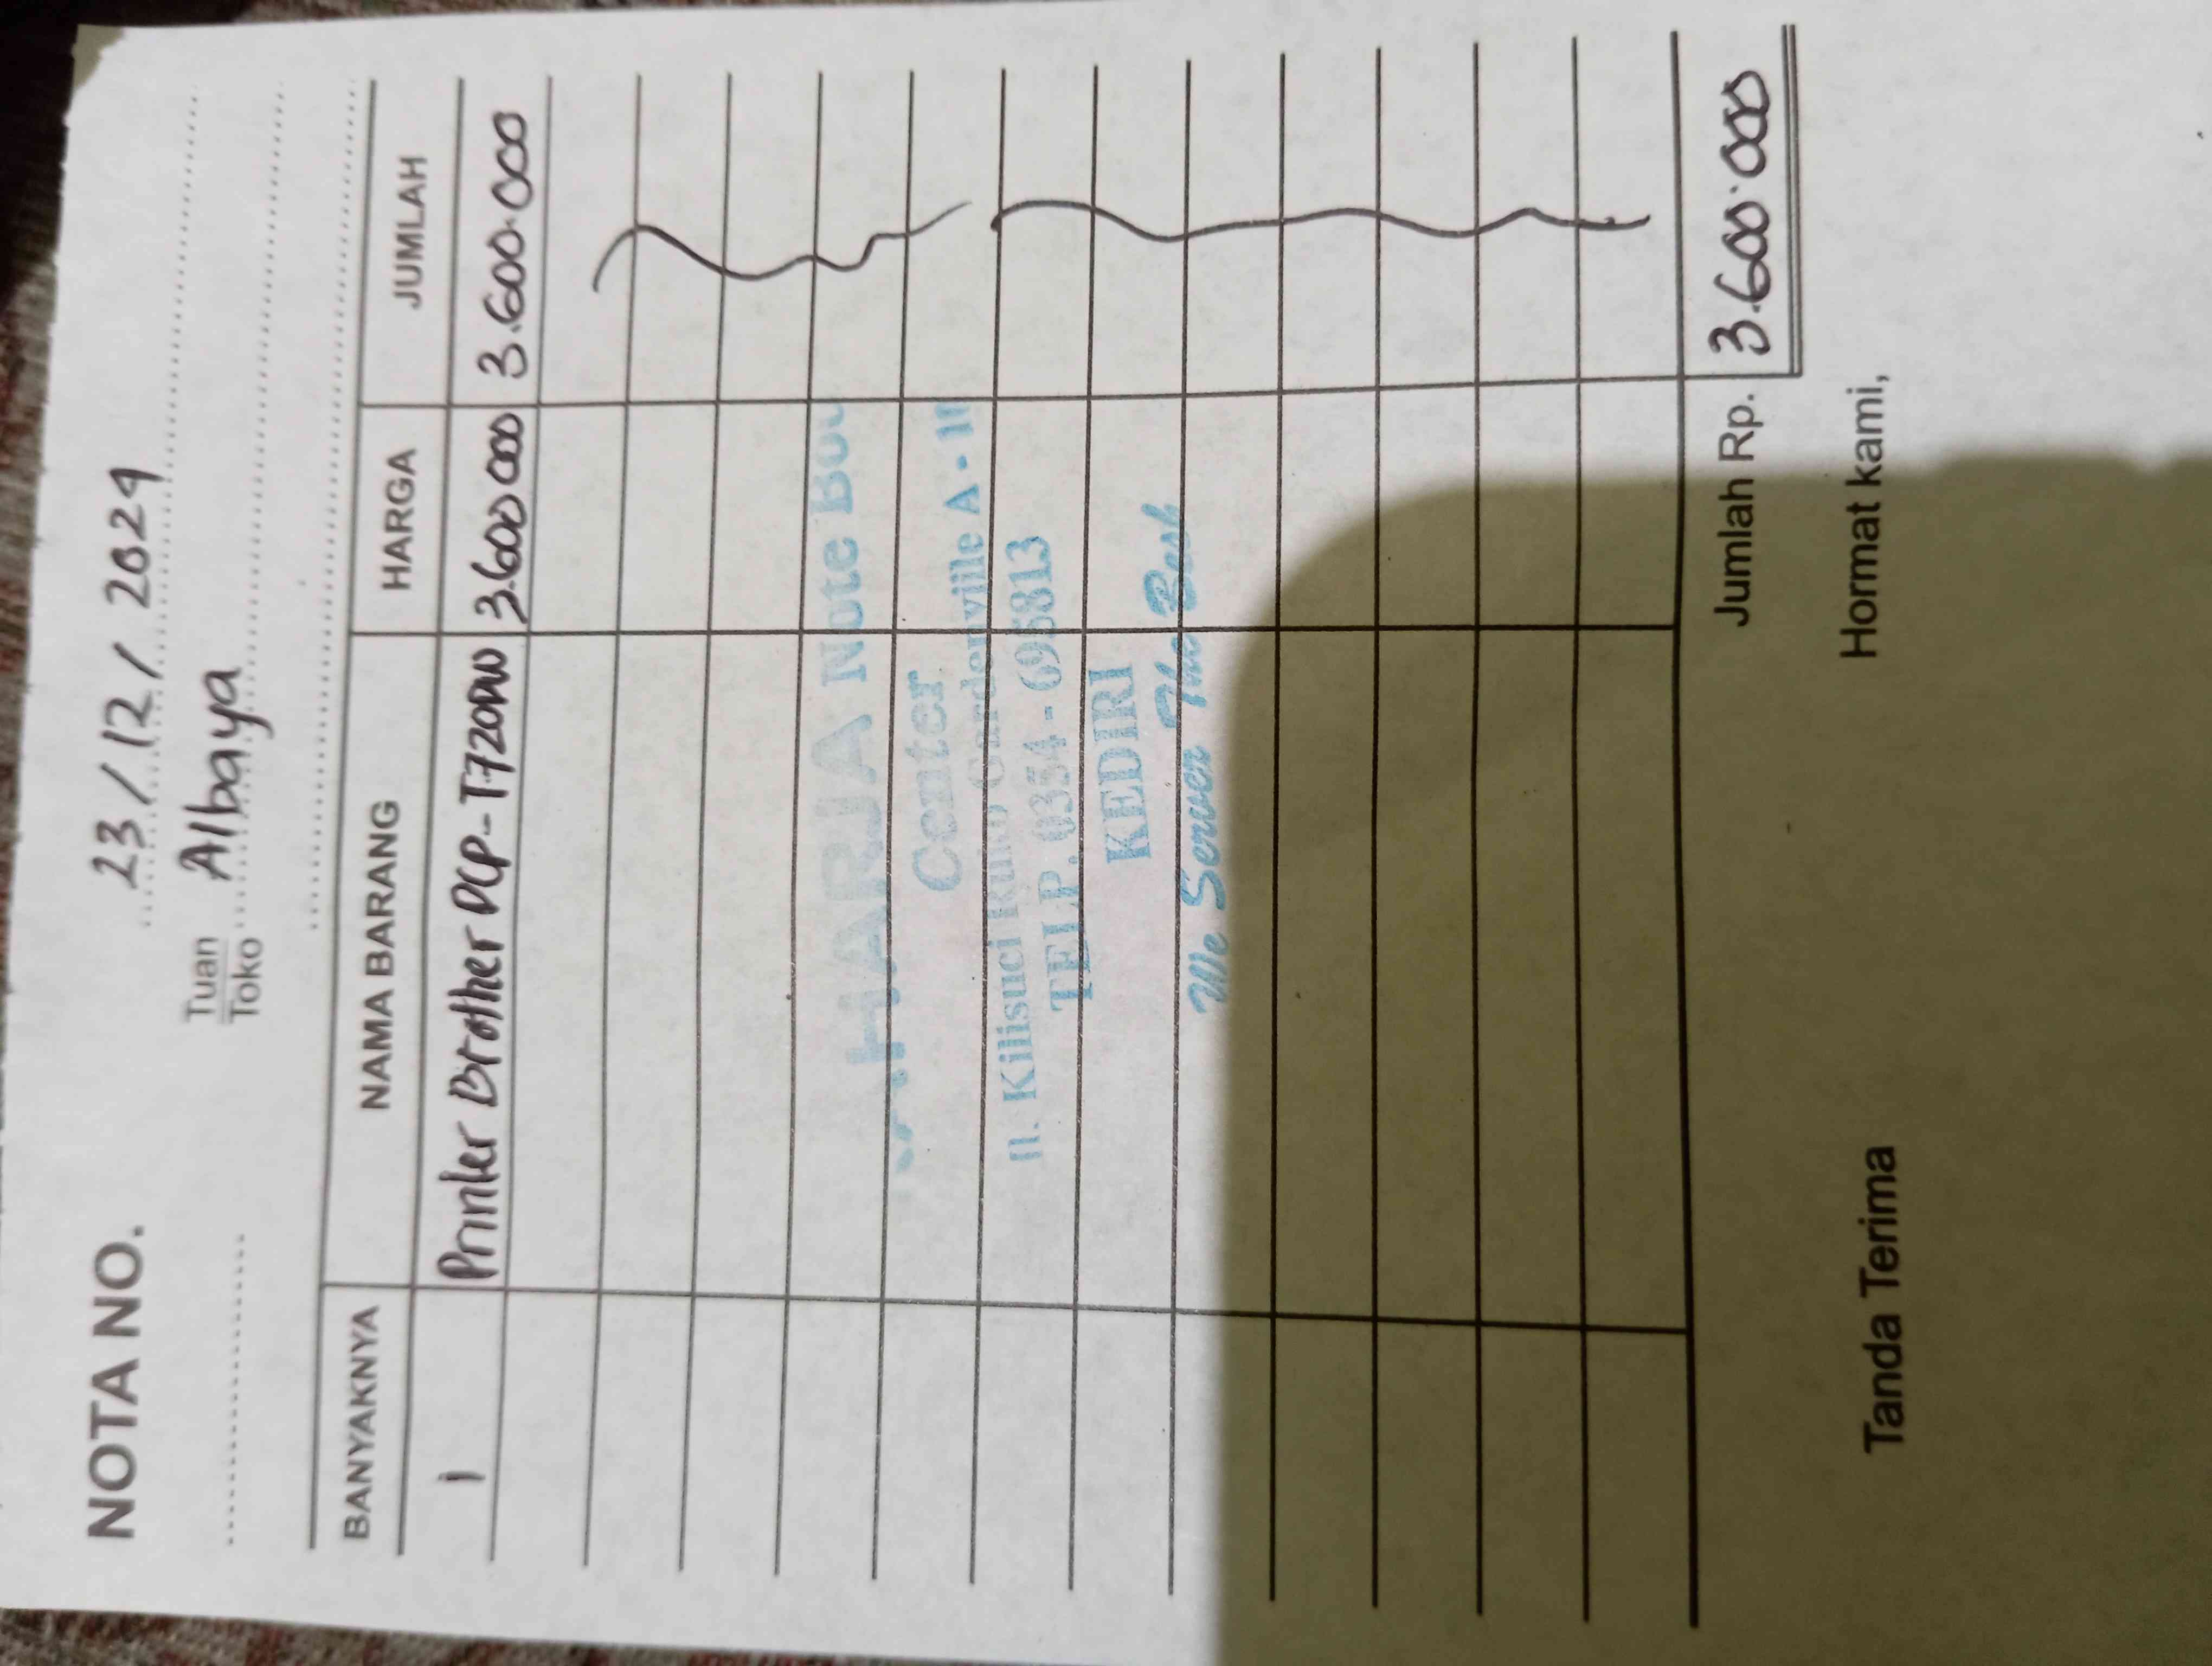 NOTA NO.
23/12/2024
Tuan
Toko Albaya
BANYAKNYA NAMA BARANG HARGA JUMLAH
1 Printer Brother DCP-T720DW 3.600 000 3.600.000
HARJA Note Bou
Center
Jl. Kilisuci Ruko Gardenville A - 1
TELP. 0354 - 695813
KEDIRI
We Server The Best
Jumlah Rp. 3.600.000
Tanda Terima Hormat kami,